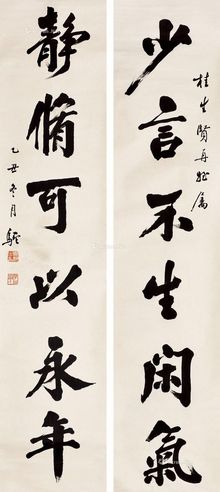 少言不生閑氣
桂生賢再姪屬
靜脩可以永年
乙丑冬月